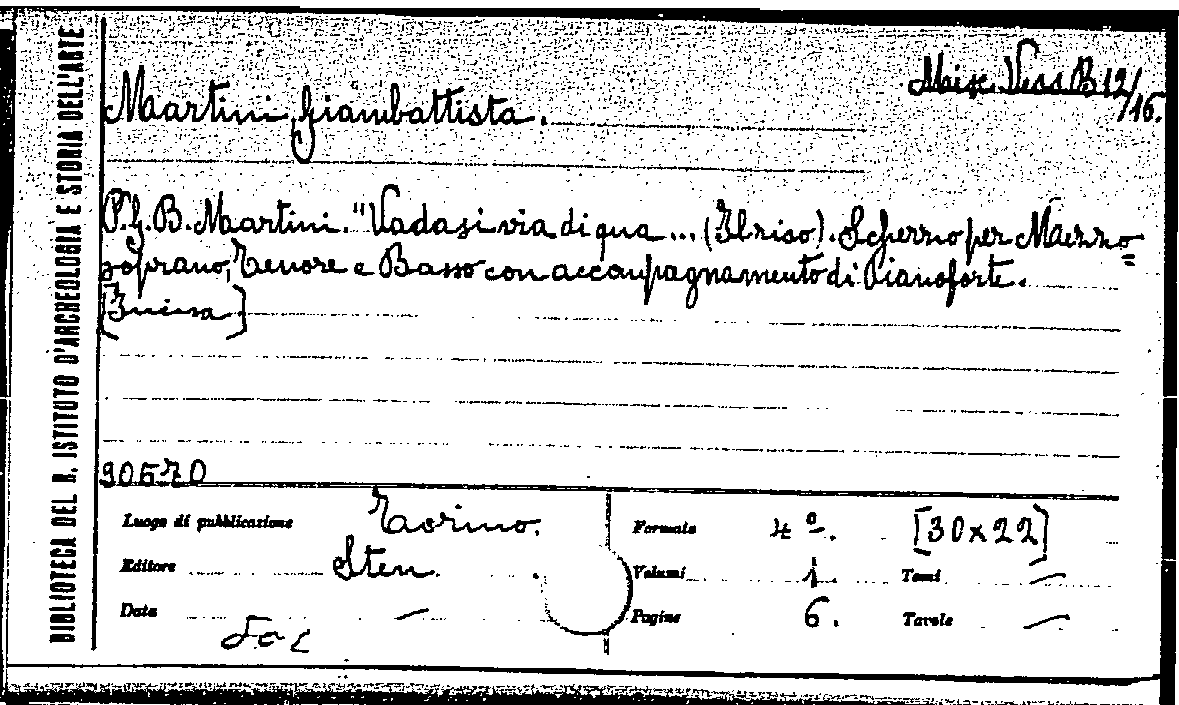 BIBLIOTECA DEL R. ISTITUTO D'ARCHEOLOGIA E STORIA DELL'ARTE
Misc. Vess B 12/16.
Martini Giambattista.
P. G. B. Martini. "Vadasi via di qua... (Il riso). Scherzo per Mezzo=
soprano, Tenore e Basso con accompagnamento di Pianoforte.
[Incisa]
90570
Luogo di pubblicazione Torino. Formato 4º. [30x22]
Editore Sten Volumi 1. Tomi —
Data — Pagine 6. Tavole —